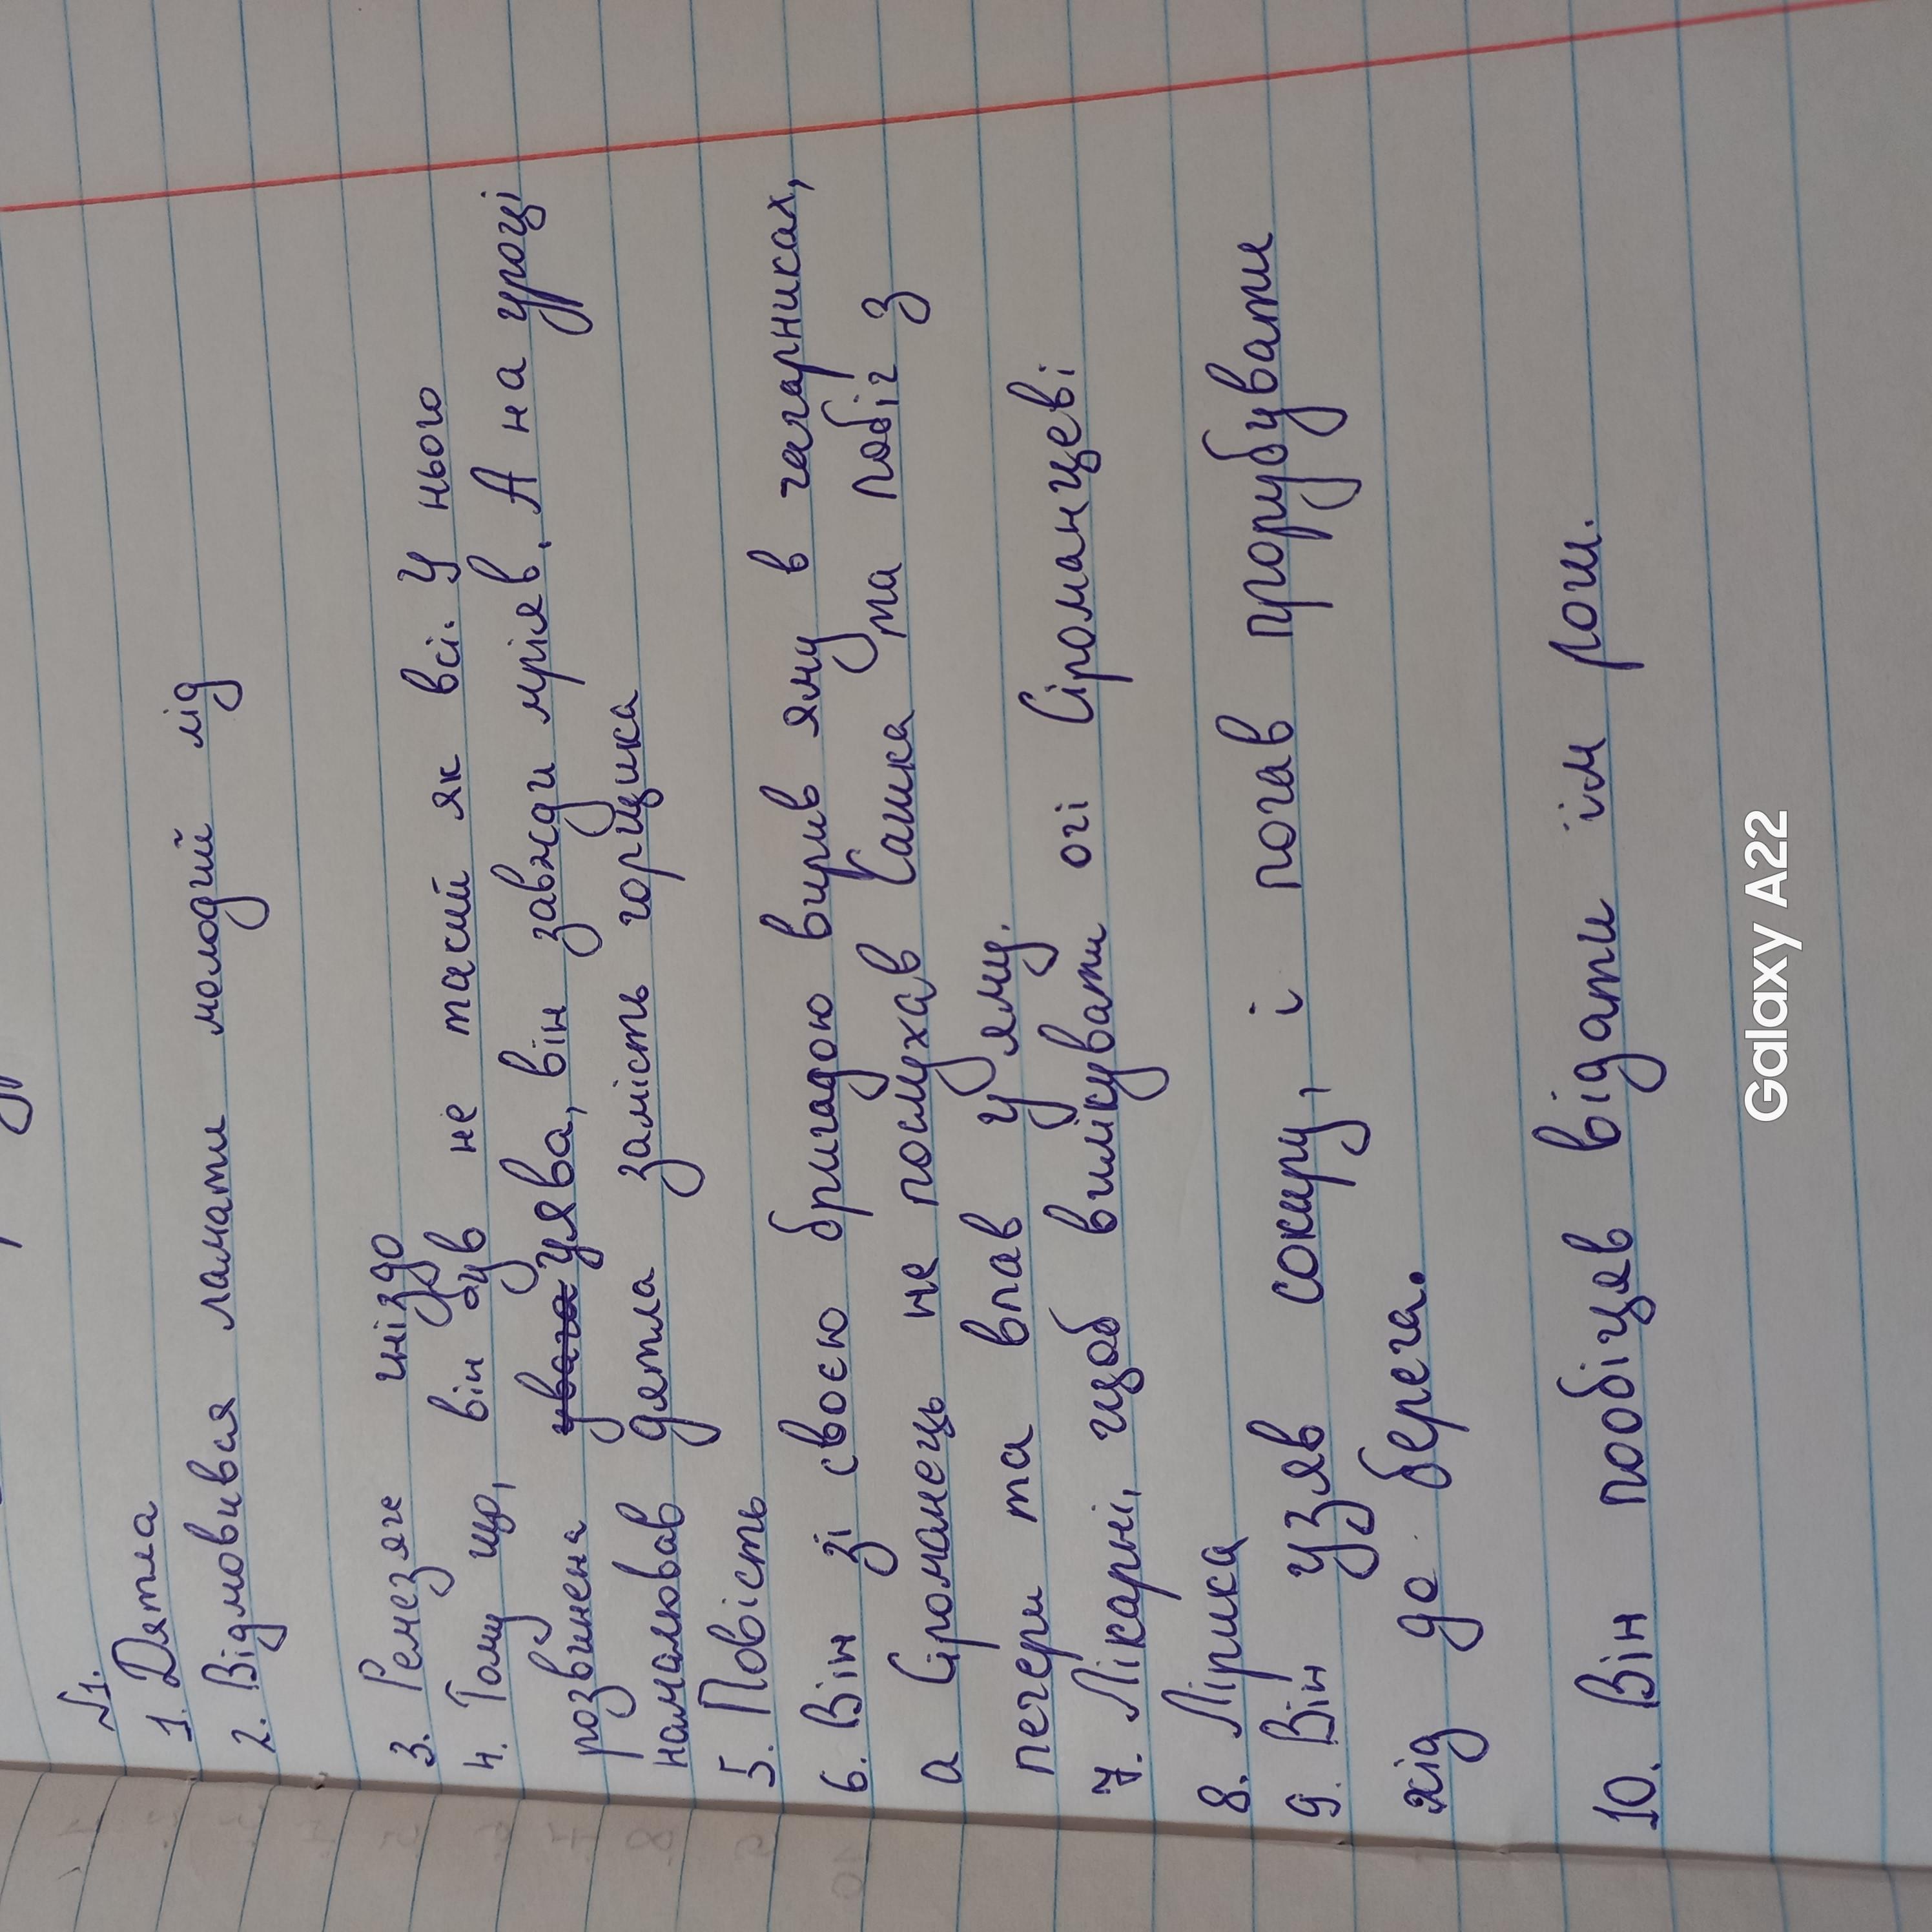 №1.
1. Дятла
2. Відмовився ламати молодий лід
3. Ремезяче гніздо
4. Тому що, він був не такий як всі. У нього
розвинена уява, він завжди мріяв. А на уроці
намалював дятла замість горщика
5. Повість
6. Він зі своєю бригадою вирив яму в чагарниках,
а Сіроманець не послухав Сашка та побіг з
печери та впав у яму.
7. Лікарні, щоб вилікувати очі Сіроманцеві
8. Лірика
9. Він узяв сокиру, і почав прорубувати
хід до берега.
10. Він пообіцяв відати їм рош.
Galaxy A22